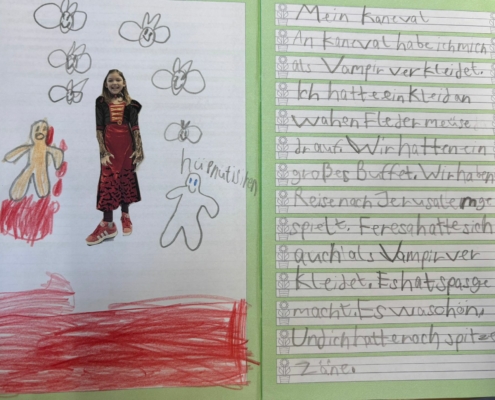 hüipnutisiren
Mein Kaneval
An Kaneval habe ich mich
als Vampir verkleidet.
Ich hatte ein Kleid an
wahen Fleder meuse
drauf Wir hatten ein
großes Buffet. Wir haben
Reise nach Jerusalem ge
spielt. Feresa hatte sich
auch als Vampir ver
kleidet. Es hat spasge
macht. Es wa schön.
Und ich hatte noch spitze
Zäne.